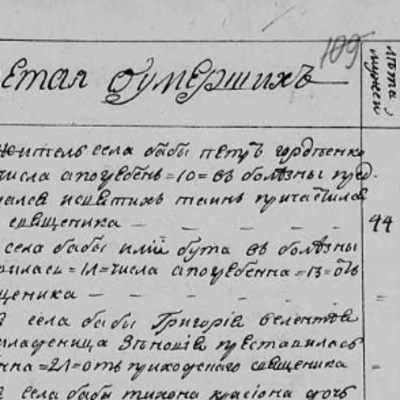 109
етая оумершихъ
лѣта мужеи
житель села бабы петръ гордѣенко
числа а погребенъ =10= въ болѣзны
святихъ таинъ причастился
священика 44
села бабы илїи бута въ болѣзны
=11= числа а погребенна =13= отъ
щеника =
села бабы Григорїя велентѣя
младеница Зѣновїя преставилась
нна =21= отъ приходского священика =
села бабы тихона красїона дочь